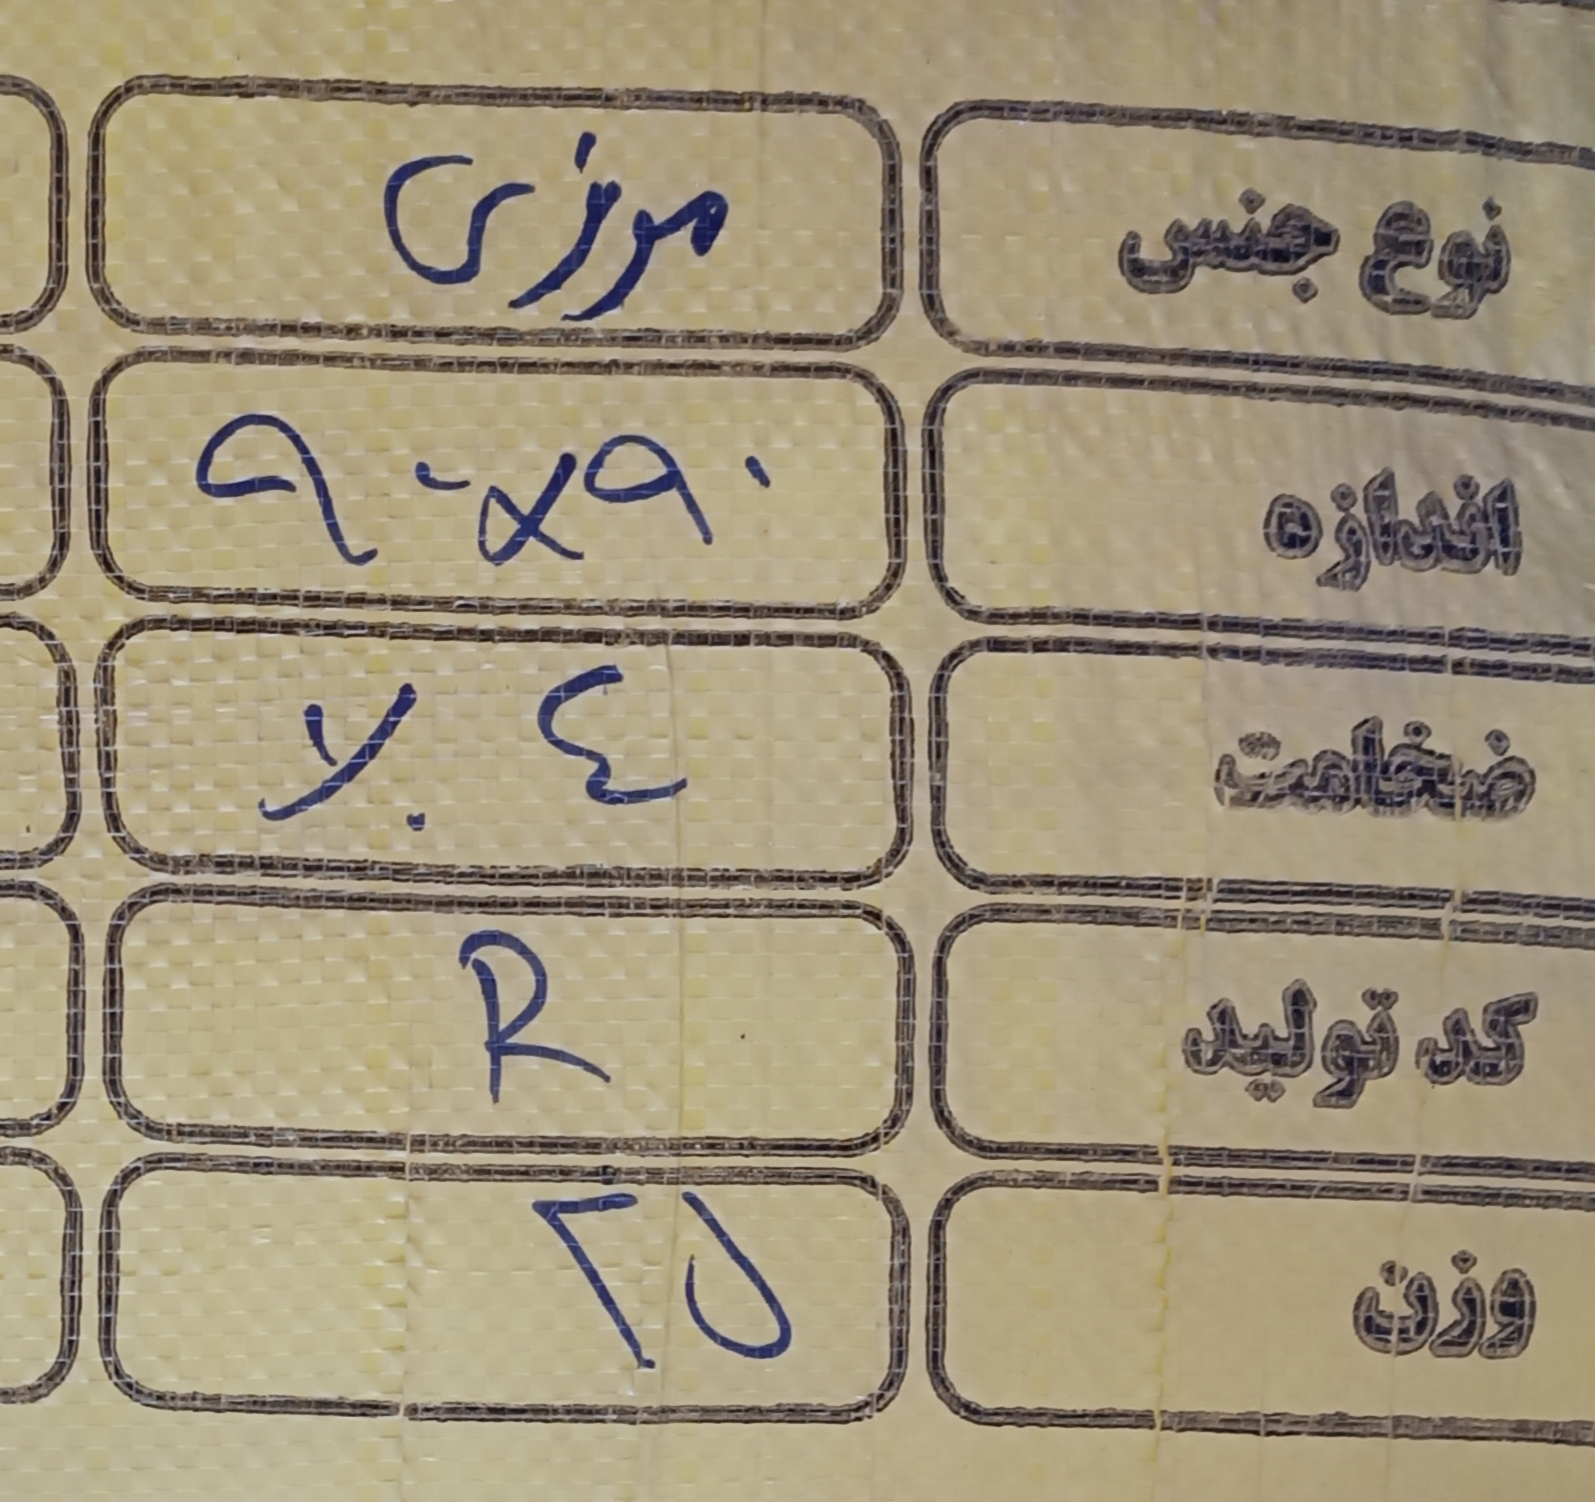 نوع جنس موزی
اندازه ۹۰x۹۰
ضخامت ٤
کد تولید R
وزن ۲۵